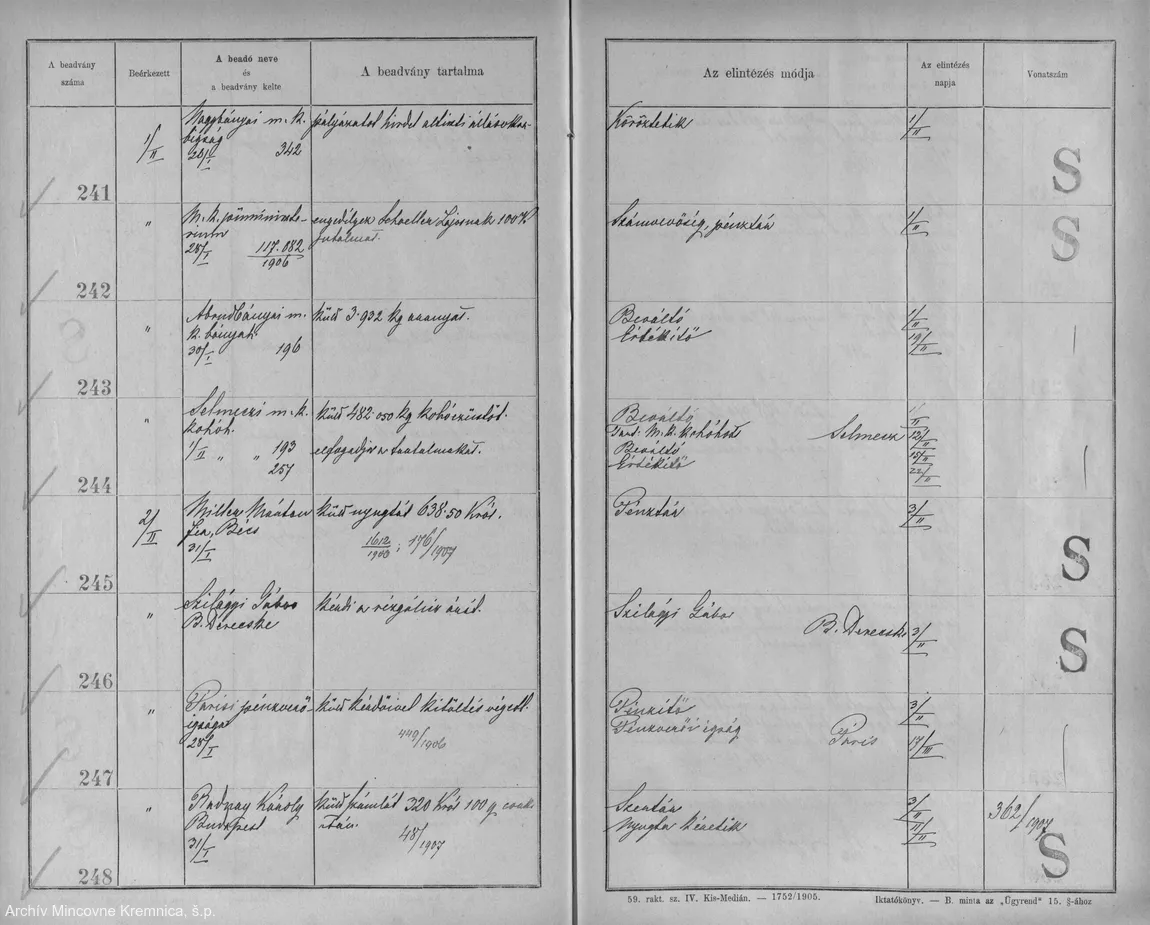 A beadvány
száma
Beérkezett
A beadó neve
és
a beadvány kelte
A beadvány tartalma
Az elintézés módja
Az elintézés
napja
Vonatszám
241
1/II
Nagybányai m. k.
342
pályázatot hirdet altiszti
Köröztetik
1/II
S
242
"
28/I
117.082
1906
engedélyez Schoeller Lajosnak 100 K
jutalmat.
Számvevőség, pénztár
1/II
S
243
"
Abrudbányai m.
k. bányah.
30/I 196
küld 3·932 kg aranyat.
Beváltó
Értékítő
1/II
19/II
244
"
Selmeczi m. k.
kohóh.
1/II " " 193
257
küld 482·050 kg kohóezüstöt.
elfogadja a tartalmakat.
Beváltó
M. k. kohóhiv. Selmecz
Beváltó
Értékítő
II
12/II
15/II
22/II
245
2/II
Miller Márton
fia, Bécs
31/I
küld nyugtát 638·50 Król.
1612/1906 ; 176/1907
Pénztár
3/II
S
246
"
Szilágyi Gábor
B. Derecske
kérdi a rézgálicz árát.
Szilágyi Gábor
B. Derecske
3/II
S
247
"
Párisi pénzverő
igazgat
28/I
küld kérdőívet kitöltés végett.
449/1906
Pénzverői igság Páris
3/II
17/III
248
"
Budapest
31/I
küld számlát 320 Król 100 q
48/1907
Szertár
Nyugta kéretik
3/II
11/II
362/1907
S
59. rakt. sz. IV. Kis-Medián. — 1752/1905.
Iktatókönyv. — B. minta az „Ügyrend" 15. §-ához
Archív Mincovne Kremnica, š.p.